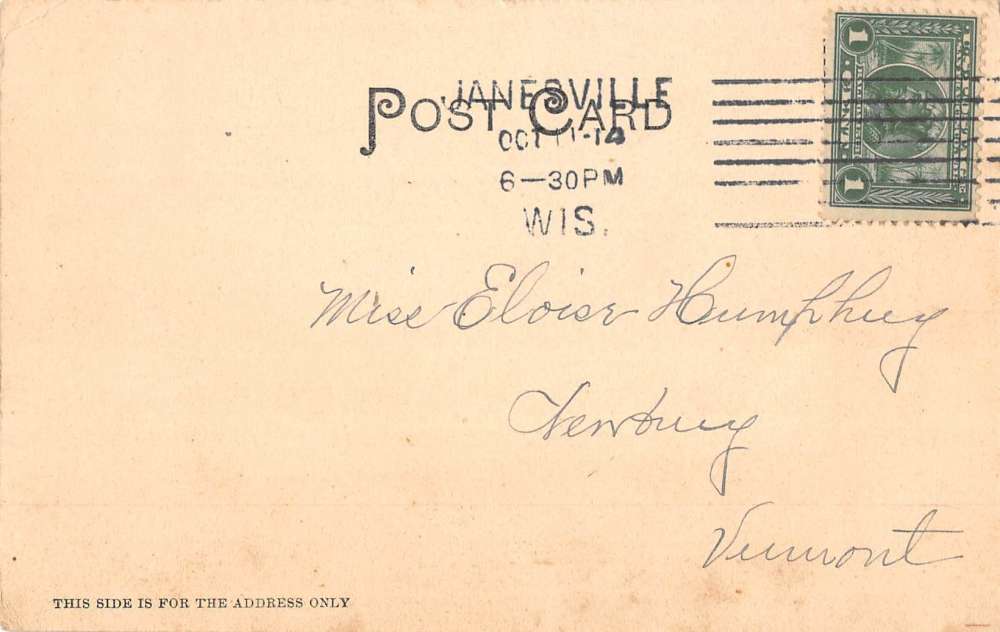 POST CARD
JANESVILLE
OCT 11-14
6-30PM
WIS.
1 1
Miss Eloise Humphrey
Newbury
Vermont
THIS SIDE IS FOR THE ADDRESS ONLY